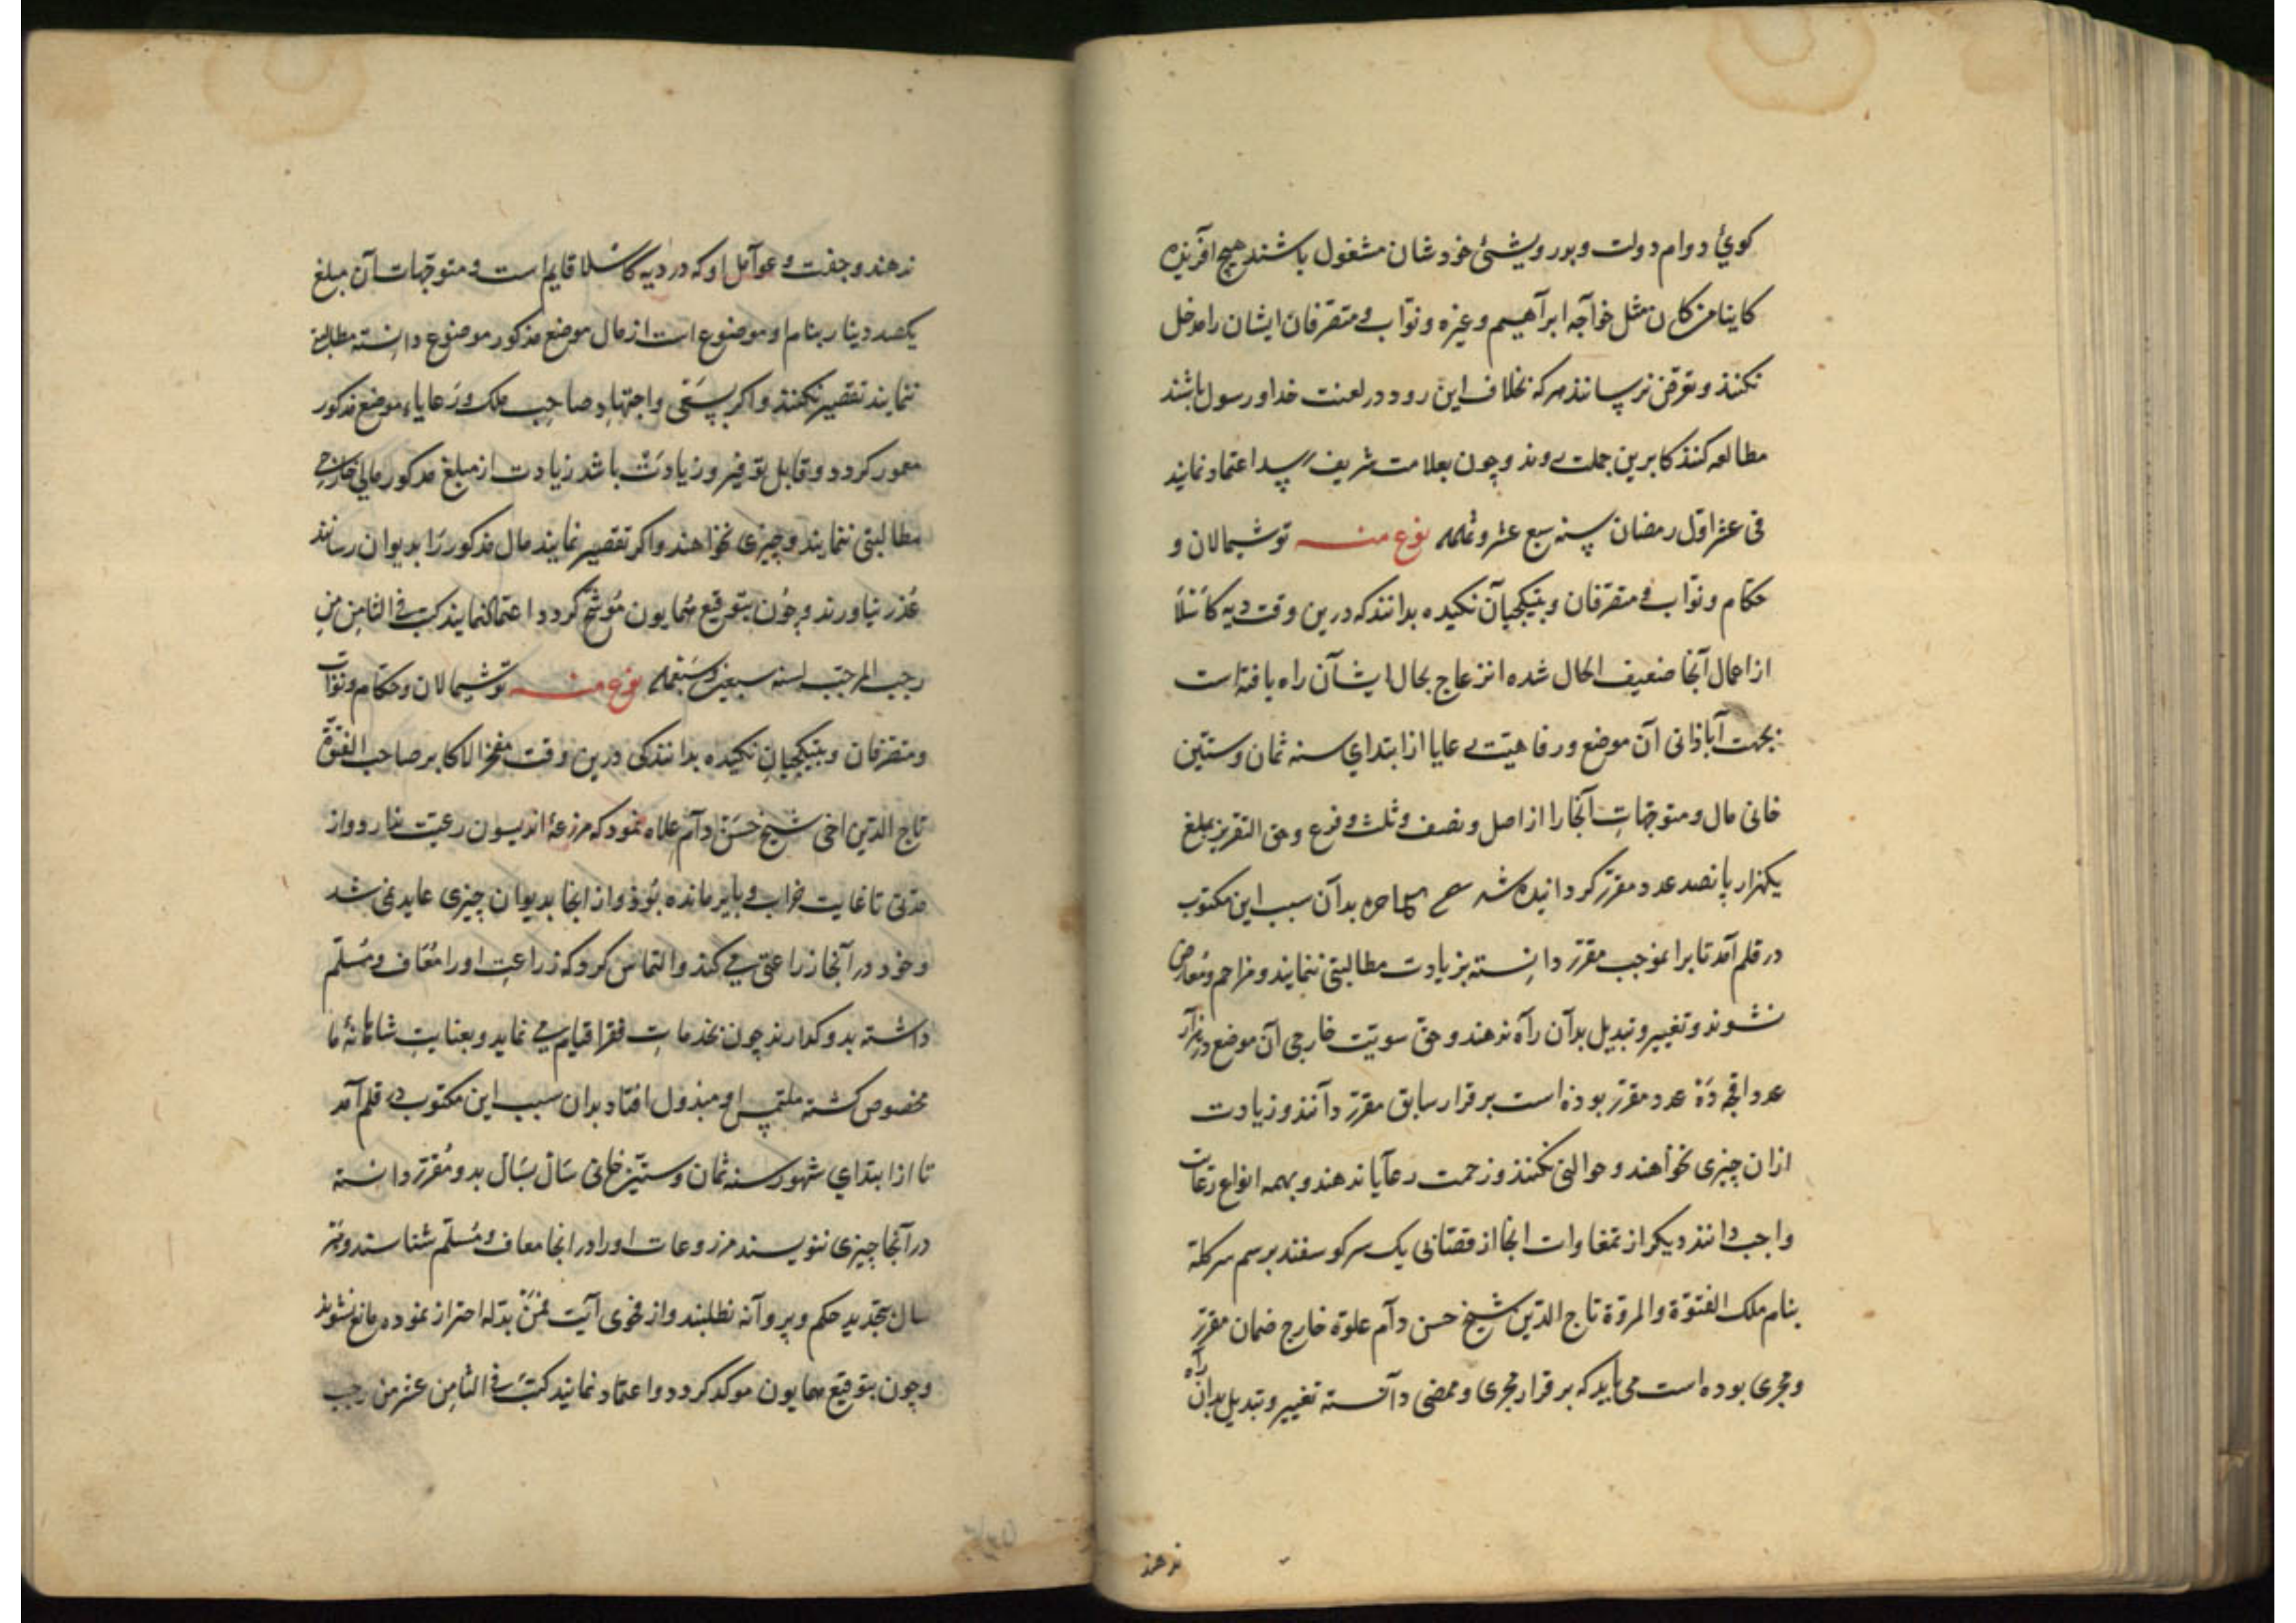 کوئ دوام دولت وبورویشئ خودشان مشغول باشند هیچ آفریذه
کاینا من کان مثل خوآجه ابرآهیم وغیره ونوّاب ومتصرفان ایشان را مدخل
نکنند وتعرّض نرسانند هرکه بخلاف این رود در لعنت خدا ورسول باشند
مطالعه کنند کابرین جملت روند وچون بعلامت شریف رسد اعتماد نمایند
فی عشر اوّل رمضان سنه سبع عشر نوع منه توشمالان و
حکّام ونوّاب ومتصرّفان وبتیکچیان نکیده بدانند که درین وقت دیه کاشلا
از اعمال آنجا ضعیف الحال شده انزعاج بحال ایشان راه یافته است
بجهت آباذانی آن موضع ورفاهیّت رعایا از ابتدای سنه ثمان وستّین
خانی مال ومتوجّهات آنجا را از اصل ونصف وثلث وفرع وحق التقریر بمبلغ
یکهزار پانصد عدد مقرّر کردانیده شد بدآن سبب این مکتوب
در قلم آمد تا برانموجب مقرّر دانسته بزیادت مطالبتی ننمایند ومزاحم ومعارض
نشوند وتغییر وتبدیل بدآن رآه ندهند وحق سویّت خارجی آن موضع
عدد اقچه ده عدد مقرّر بوده است برقرار سابق مقرّر دآنند وزیادت
ازان چیزی نخواهند وحوالتی نکنند وزحمت رعآیا ندهند وبهمه انواع رعایت
واجب دانند دیکر از تمغاوات آنجا از قصّابی یک سر کوسفند برسم سرکله
بنام ملک الفتوّة والمروّة تاج الدّین شیخ حسن دآم علوّه خارج ضمان مقرّر
ومجری بوده است می باید که برقرار مجری وممضی دآنسته تغییر وتبدیل بدان راه
ندهند
ندهند وجفت وعوآمل او که در دیه کاشلا قایم است ومتوجّهات آن مبلغ
یکصد دینار بنام او موضوع است از مال موضع مذکور موضوع دانسته مطالبه
ننمایند تقصیر نکنند واکر بسعی واجتهاد صاحب ملک ورعایاء موضع مذکور
معمور کردد وقابل توفیر وزیادت باشد زیادت از مبلغ مذکور مالی خارجی
مطالبتی ننمایند وچیزی نخواهند واکر تقصیر نمایند مال مذکور را بدیوان رسانند
عذر نیاورند وچون بتوقیع همایون موشّح کردد اعتماد نمایند کتب فی الثامن من
رجب المرجّب لسنه سبعین وسبعمایه نوع منه توشمالان وحکّام ونوّاب
ومتصرّفان وبتیکچیان نکیده بدانند کی درین وقت مفخر الاکابر صاحب الفتوّة
تاج الدّین اخی شیخ حسن دآم علاه نمود که مرزعهٔ اندیسون رعیّت ندارد واز
مدّتی تا غایت خراب وبایر مانده بوذ واز انجا بدیوان چیزی عاید نمی شد
وخود در آنجا زراعتی می کند والتماس کرد که زراعت او را معاف ومسلّم
داشته بدو کذارند چون بخدمات فقرا قیام می نماید وبعنایت شاهانهٔ ما
مخصوص کشته ملتمس او مبذول افتاد بدان سبب این مکتوب در قلم آمد
تا از ابتدای شهور سنه ثمان وستّین خانی سال بسال بدو مقرّر دانسته
در آنجا چیزی ننویسند مزروعات او را در انجا معاف ومسلّم شناسند وهر
سال بتجدید حکم وپروآنه نطلبند واز فحوی آیت فمن بدّله احتراز نموده مانع نشوند
وچون بتوقیع همایون موکد کردد واعتماد نمایند کتب فی الثامن عشر من رجب